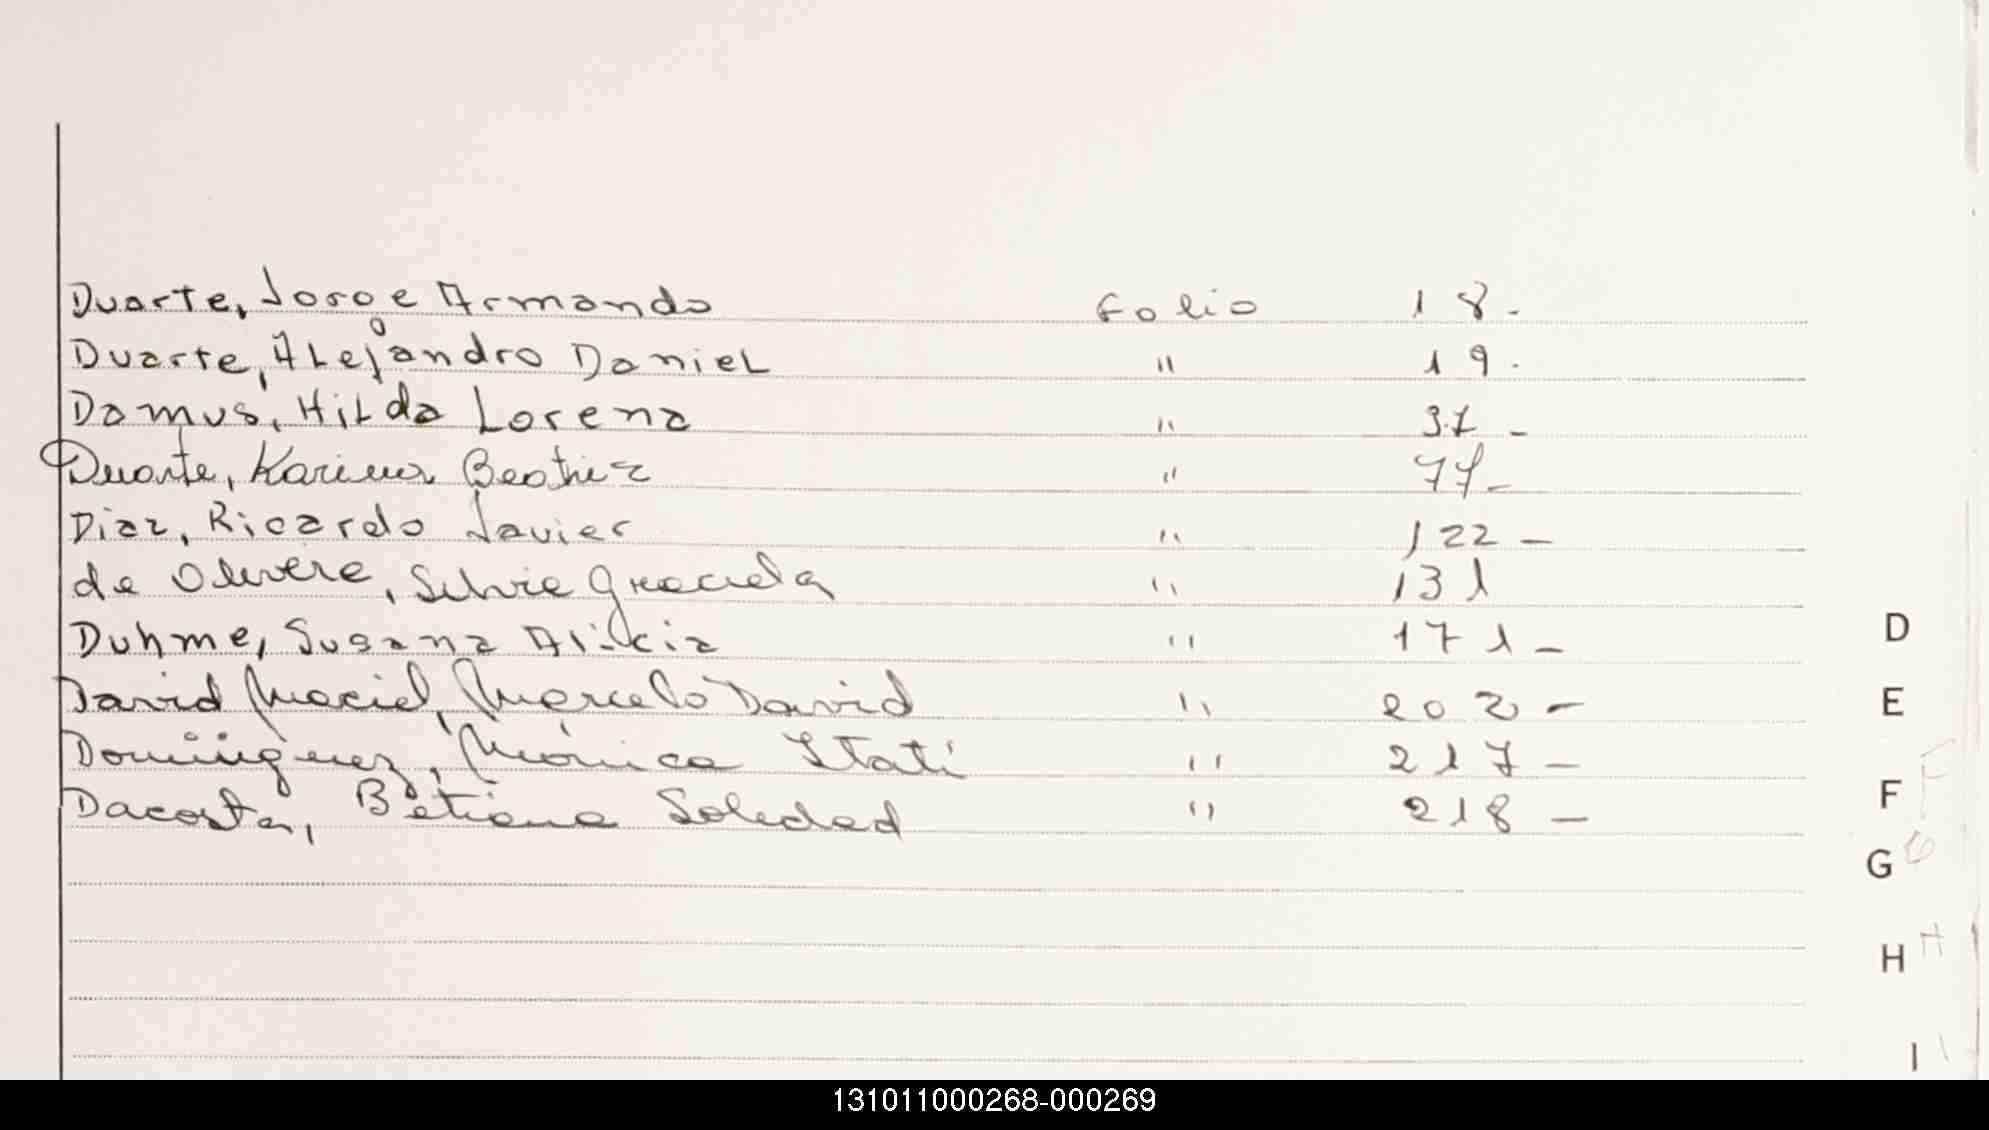 Duarte, Jorge Armando Folio 18.-
Duarte, Alejandro Daniel " 19.
Damus, Hilda Lorena " 37 -
Duarte, Karina Beatriz " 77 -
Diaz, Ricardo Javier " 122 -
de Olivera, Silvia Graciela " 131
Duhme, Susana Alicia " 171 -
D
David Maciel, Marcelo David " 202 -
E
Dominguez, Mónica Itatí " 217 -
F
Dacosta, Betiana Soledad " 218 -
G G
H H
I I
131011000268-000269